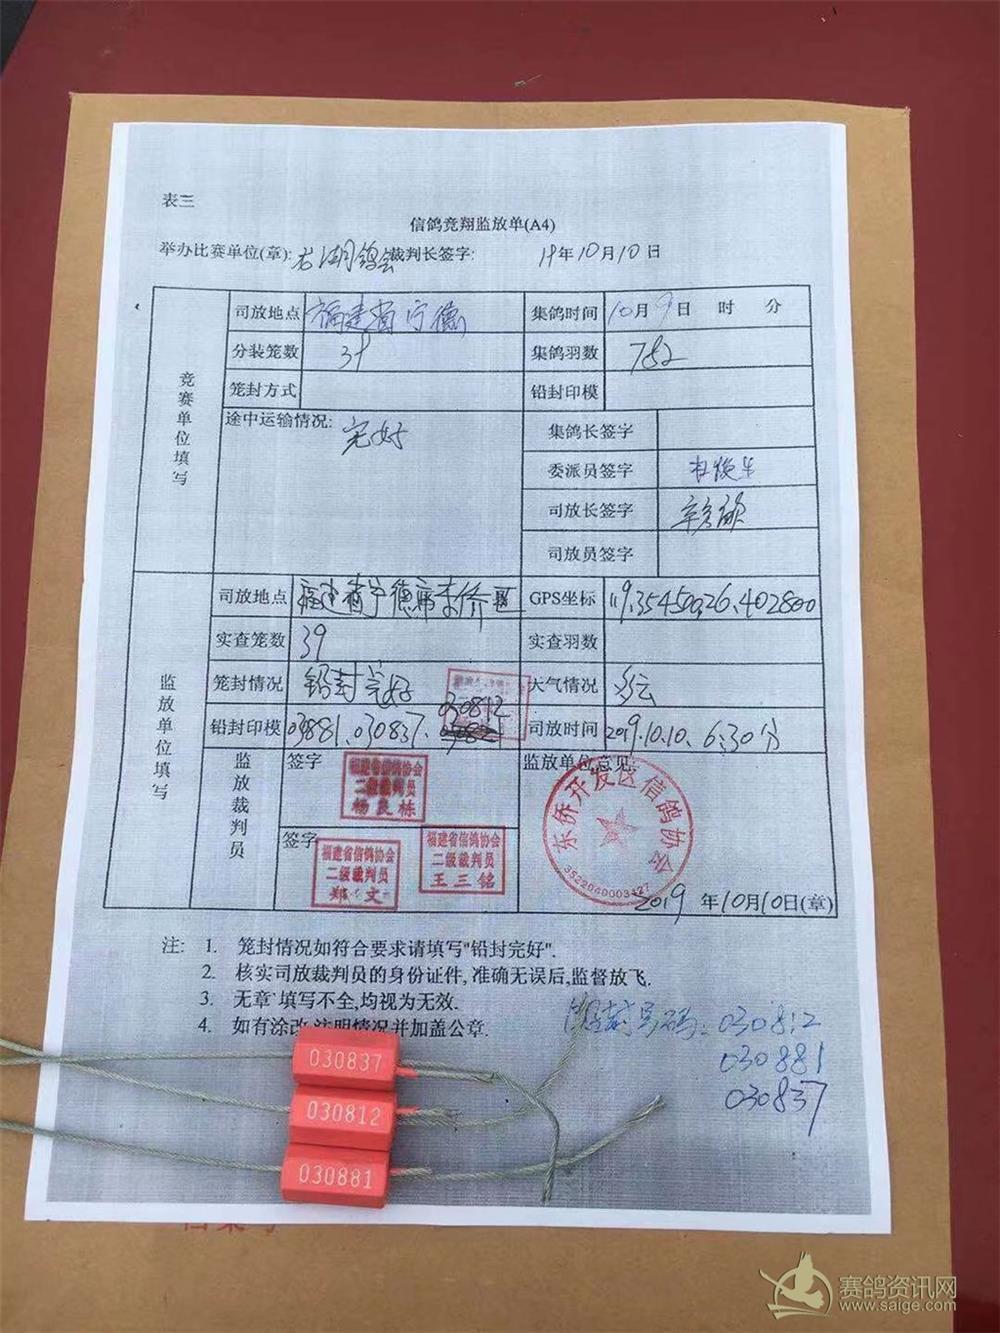 表三
信鸽竞翔监放单(A4)
举办比赛单位(章): 鸽会 裁判长签字: 19年10月10日
竞赛单位填写
司放地点 福建省宁德 集鸽时间 10月9日 时 分
分装笼数 39 集鸽羽数 782
笼封方式 铅封印模
途中运输情况: 完好 集鸽长签字
委派员签字
司放长签字
司放员签字
监放单位填写
司放地点 福建省宁德 东侨区 GPS坐标 119.354500 26.402800
实查笼数 39 实查羽数
笼封情况 铅封完好 天气情况 多云
铅封印模 030881、030837、030812 司放时间 2019.10.10. 6:30分
监放裁判员
签字 监放单位意见:
福建省信鸽协会
二级裁判员
杨良栋
签字
福建省信鸽协会
二级裁判员
郑 文
福建省信鸽协会
二级裁判员
王三铭
东侨开发区信鸽协会
3522040003427
2019年10月10日(章)
注: 1. 笼封情况如符合要求请填写"铅封完好".
2. 核实司放裁判员的身份证件, 准确无误后,监督放飞.
3. 无章 填写不全,均视为无效.
4. 如有涂改,注明情况并加盖公章.
封号码: 030812
030881
030837
030837
030812
030881
赛鸽资讯网
www.saige.com